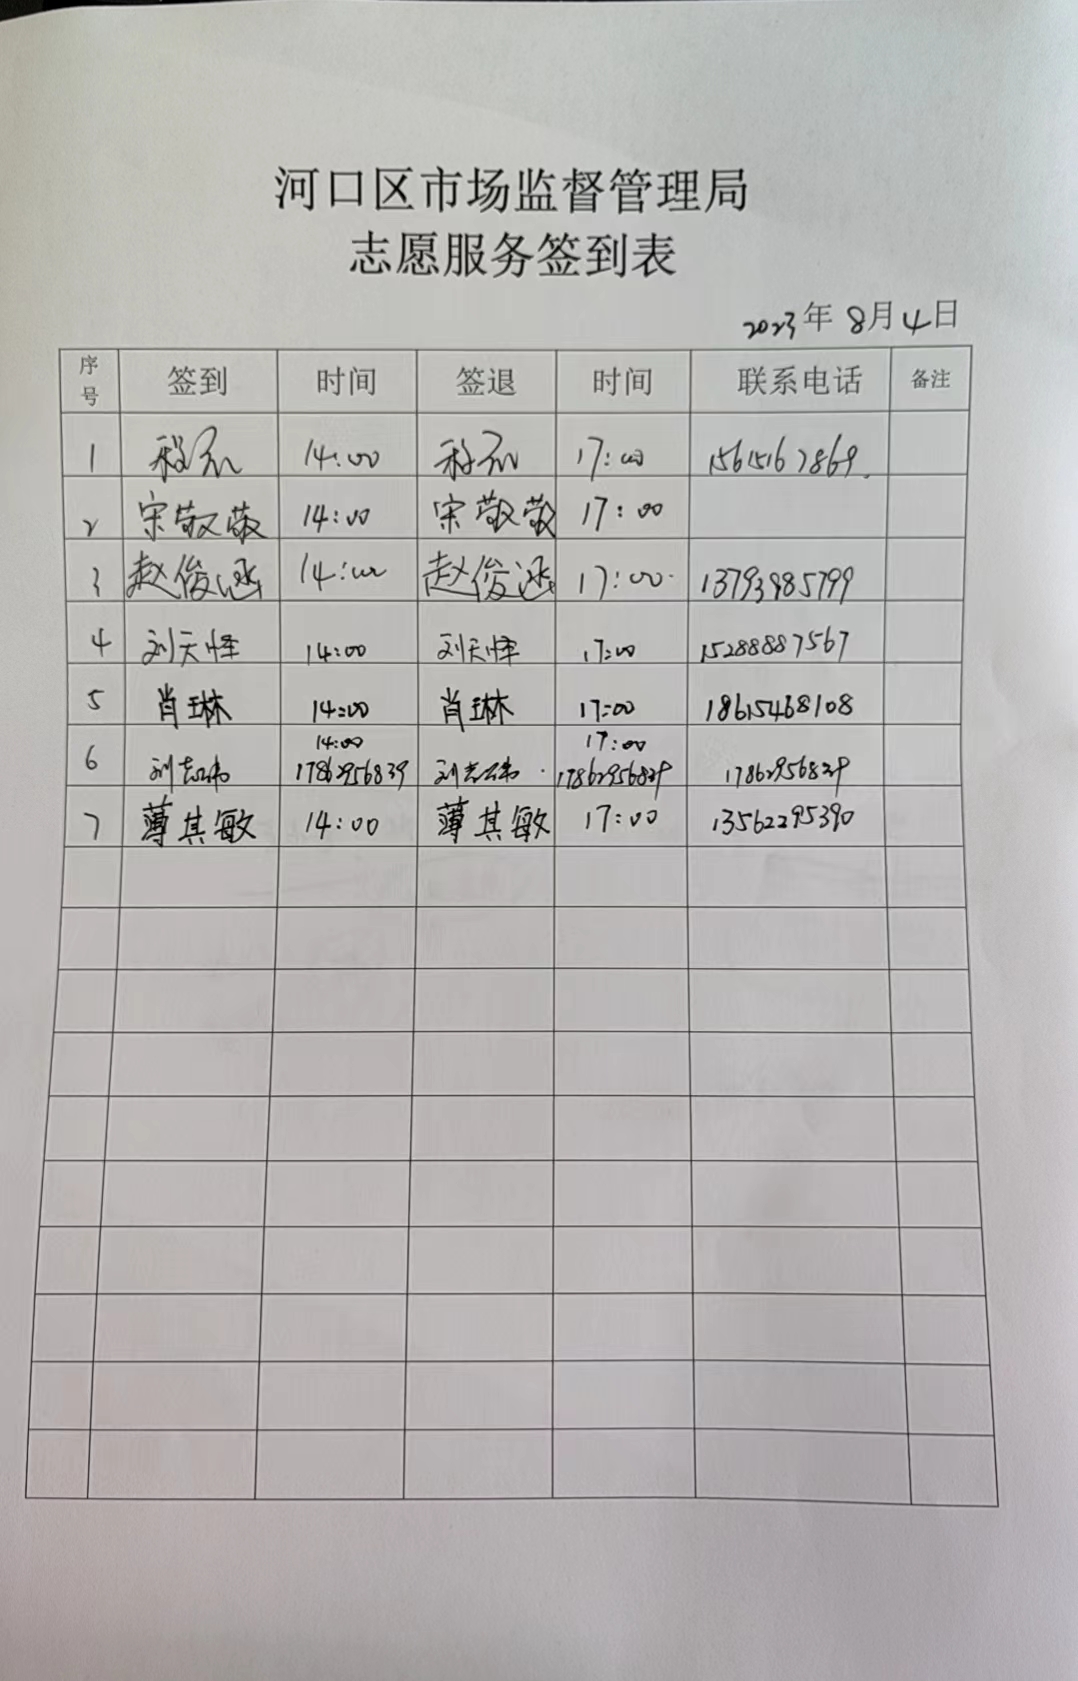 河口区市场监督管理局
志愿服务签到表
2023年 8月4日
序号 签到 时间 签退 时间 联系电话 备注
1 14:00 17:00 15615167869
2 宋敬敬 14:00 宋敬敬 17:00
3 赵俊涵 14:00 赵俊涵 17:00 13793985799
4 刘天怿 14:00 刘天怿 17:00 15288887567
5 肖琳 14:00 肖琳 17:00 18615468108
14:00 17:00
6 刘志伟 17862956839 刘志伟 17862956829 17862956829
7 薄其敏 14:00 薄其敏 17:00 13562295390